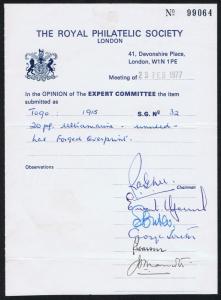 Nº 99064
THE ROYAL PHILATELIC SOCIETY
LONDON
41, Devonshire Place,
London, W1N 1PE
Meeting of 23 FEB 1977
In the OPINION of The EXPERT COMMITTEE the item
submitted as
Togo: 1915 S.G. Nº 32
20pf. Ultramarine - unused
has Forged Overprint.
Observations
Chairman